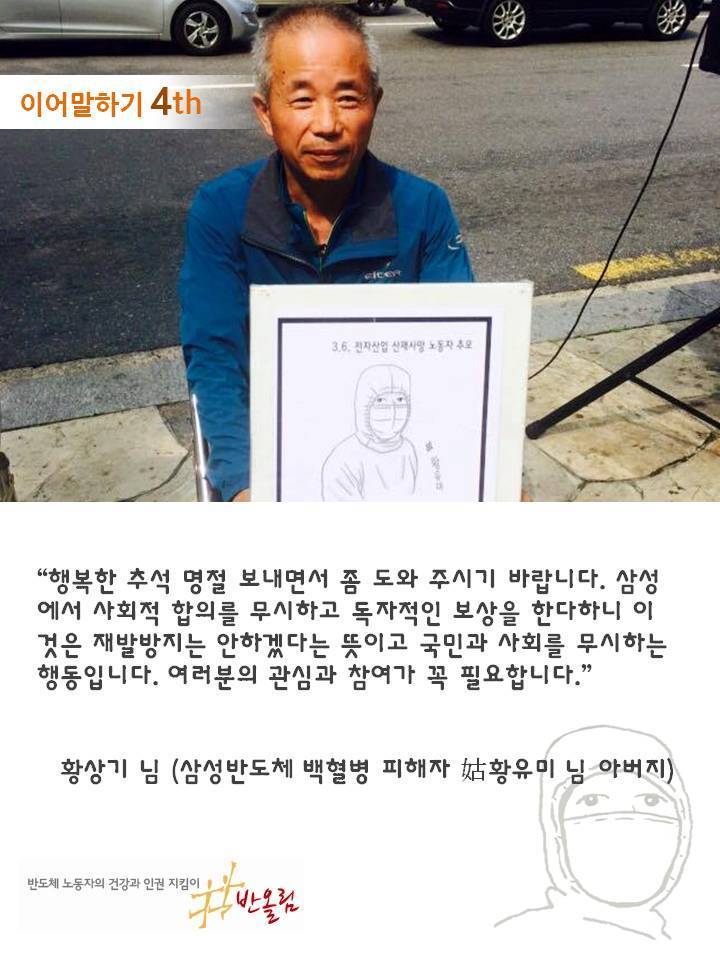 이어말하기 4th
eider
3.6. 전자산업 산재사망 노동자 추모
故 황유미
“행복한 추석 명절 보내면서 좀 도와 주시기 바랍니다. 삼성
에서 사회적 합의를 무시하고 독자적인 보상을 한다하니 이
것은 재발방지는 안하겠다는 뜻이고 국민과 사회를 무시하는
행동입니다. 여러분의 관심과 참여가 꼭 필요합니다.”
황상기 님 (삼성반도체 백혈병 피해자 姑황유미 님 아버지)
반도체 노동자의 건강과 인권 지킴이
반올림